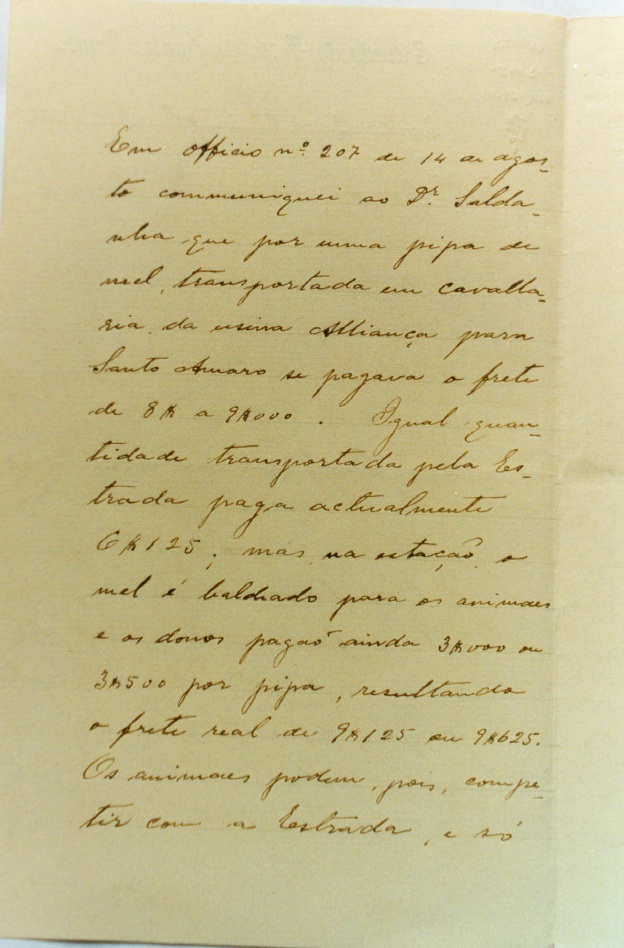 Em officio nº 207 de 14 de agos-
to communiquei ao Dr. Salda-
nha que por uma pipa de
mel, transportada em cavalla-
ria, da usina Alliança para
Santo Amaro se pagava o frete
de 8$ a 9$000. Igual quan-
tidade transportada pela Es-
trada paga actualmente
6$125; mas, na estação, o
mel é baldeado para os animaes
e os donos pagaõ ainda 3$000 ou
3$500 por pipa, resultando
o frete real de 9$125 ou 9$625.
Os animaes podem, pois, compe-
tir com a Estrada, e só